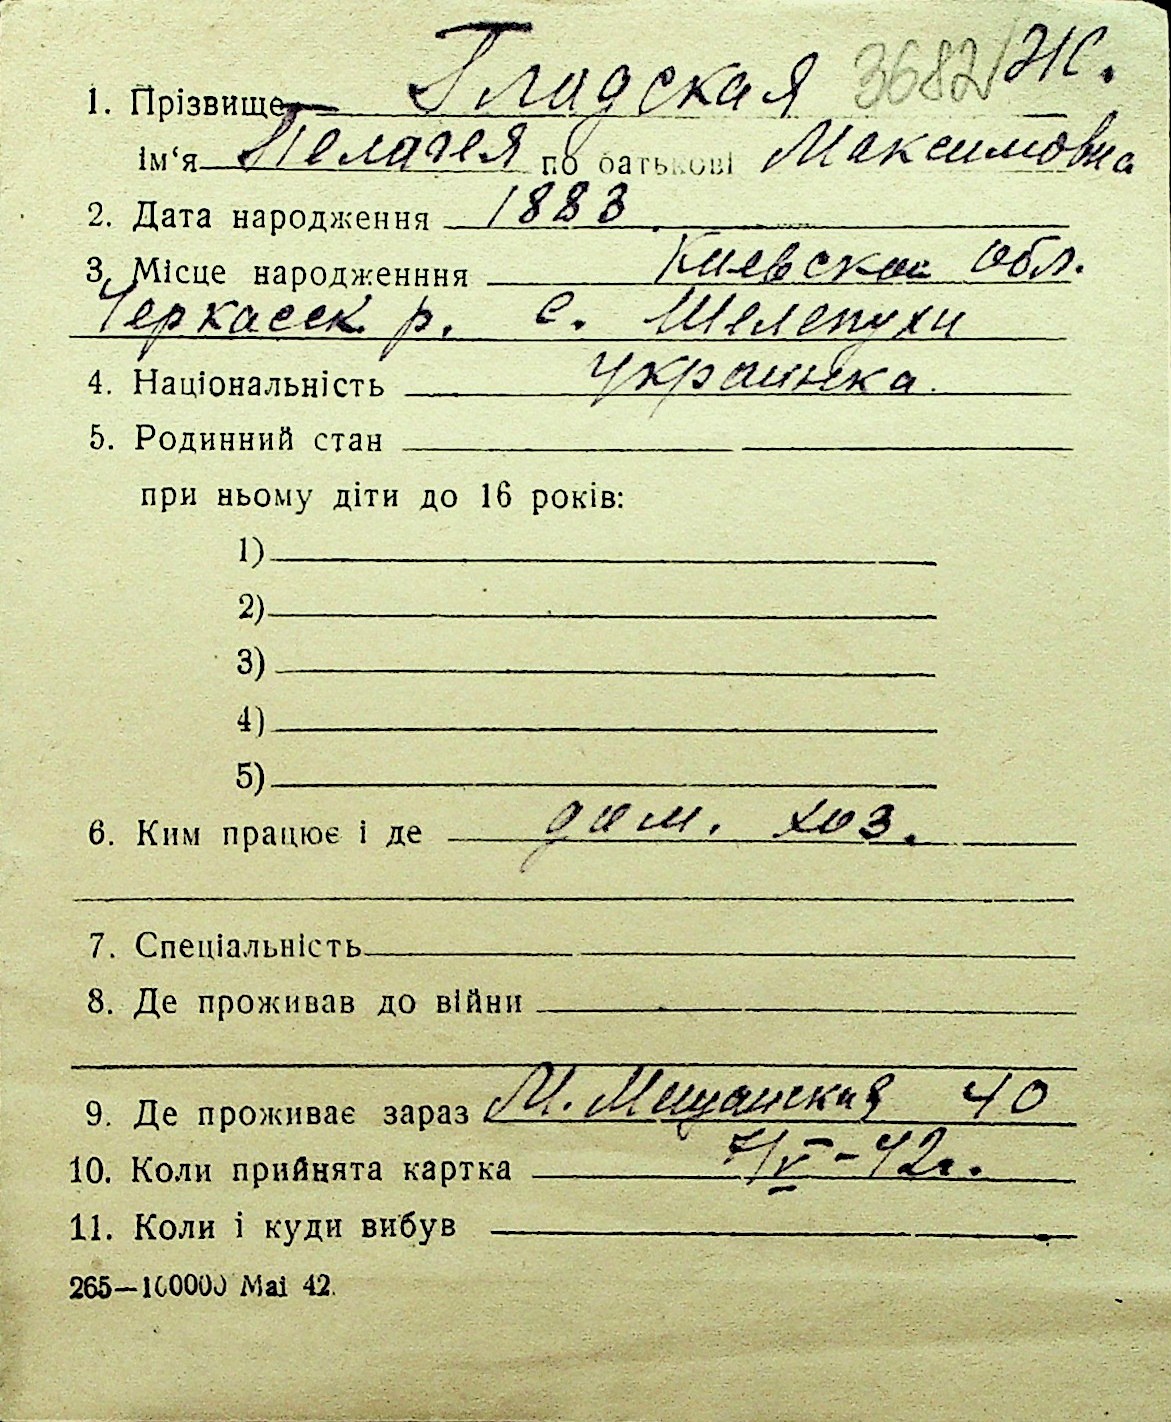 1. Прізвище Гладская 3682/ Ж.
ім‘я Пелагея по батькові Максимовна
2. Дата народження 1883
3. Місце народженння Киевской обл.
Черкасск. р. с. Шелепухи
4. Національність украинка.
5. Родинний стан
при ньому діти до 16 років:
1)
2)
3)
4)
5)
6. Ким працює і де дом. хоз.
7. Спеціальність
8. Де проживав до війни
9. Де проживає зараз М. Мещанская 40
10. Коли прийнята картка 7/V-42г.
11. Коли і куди вибув
265—100000 Mai 42.